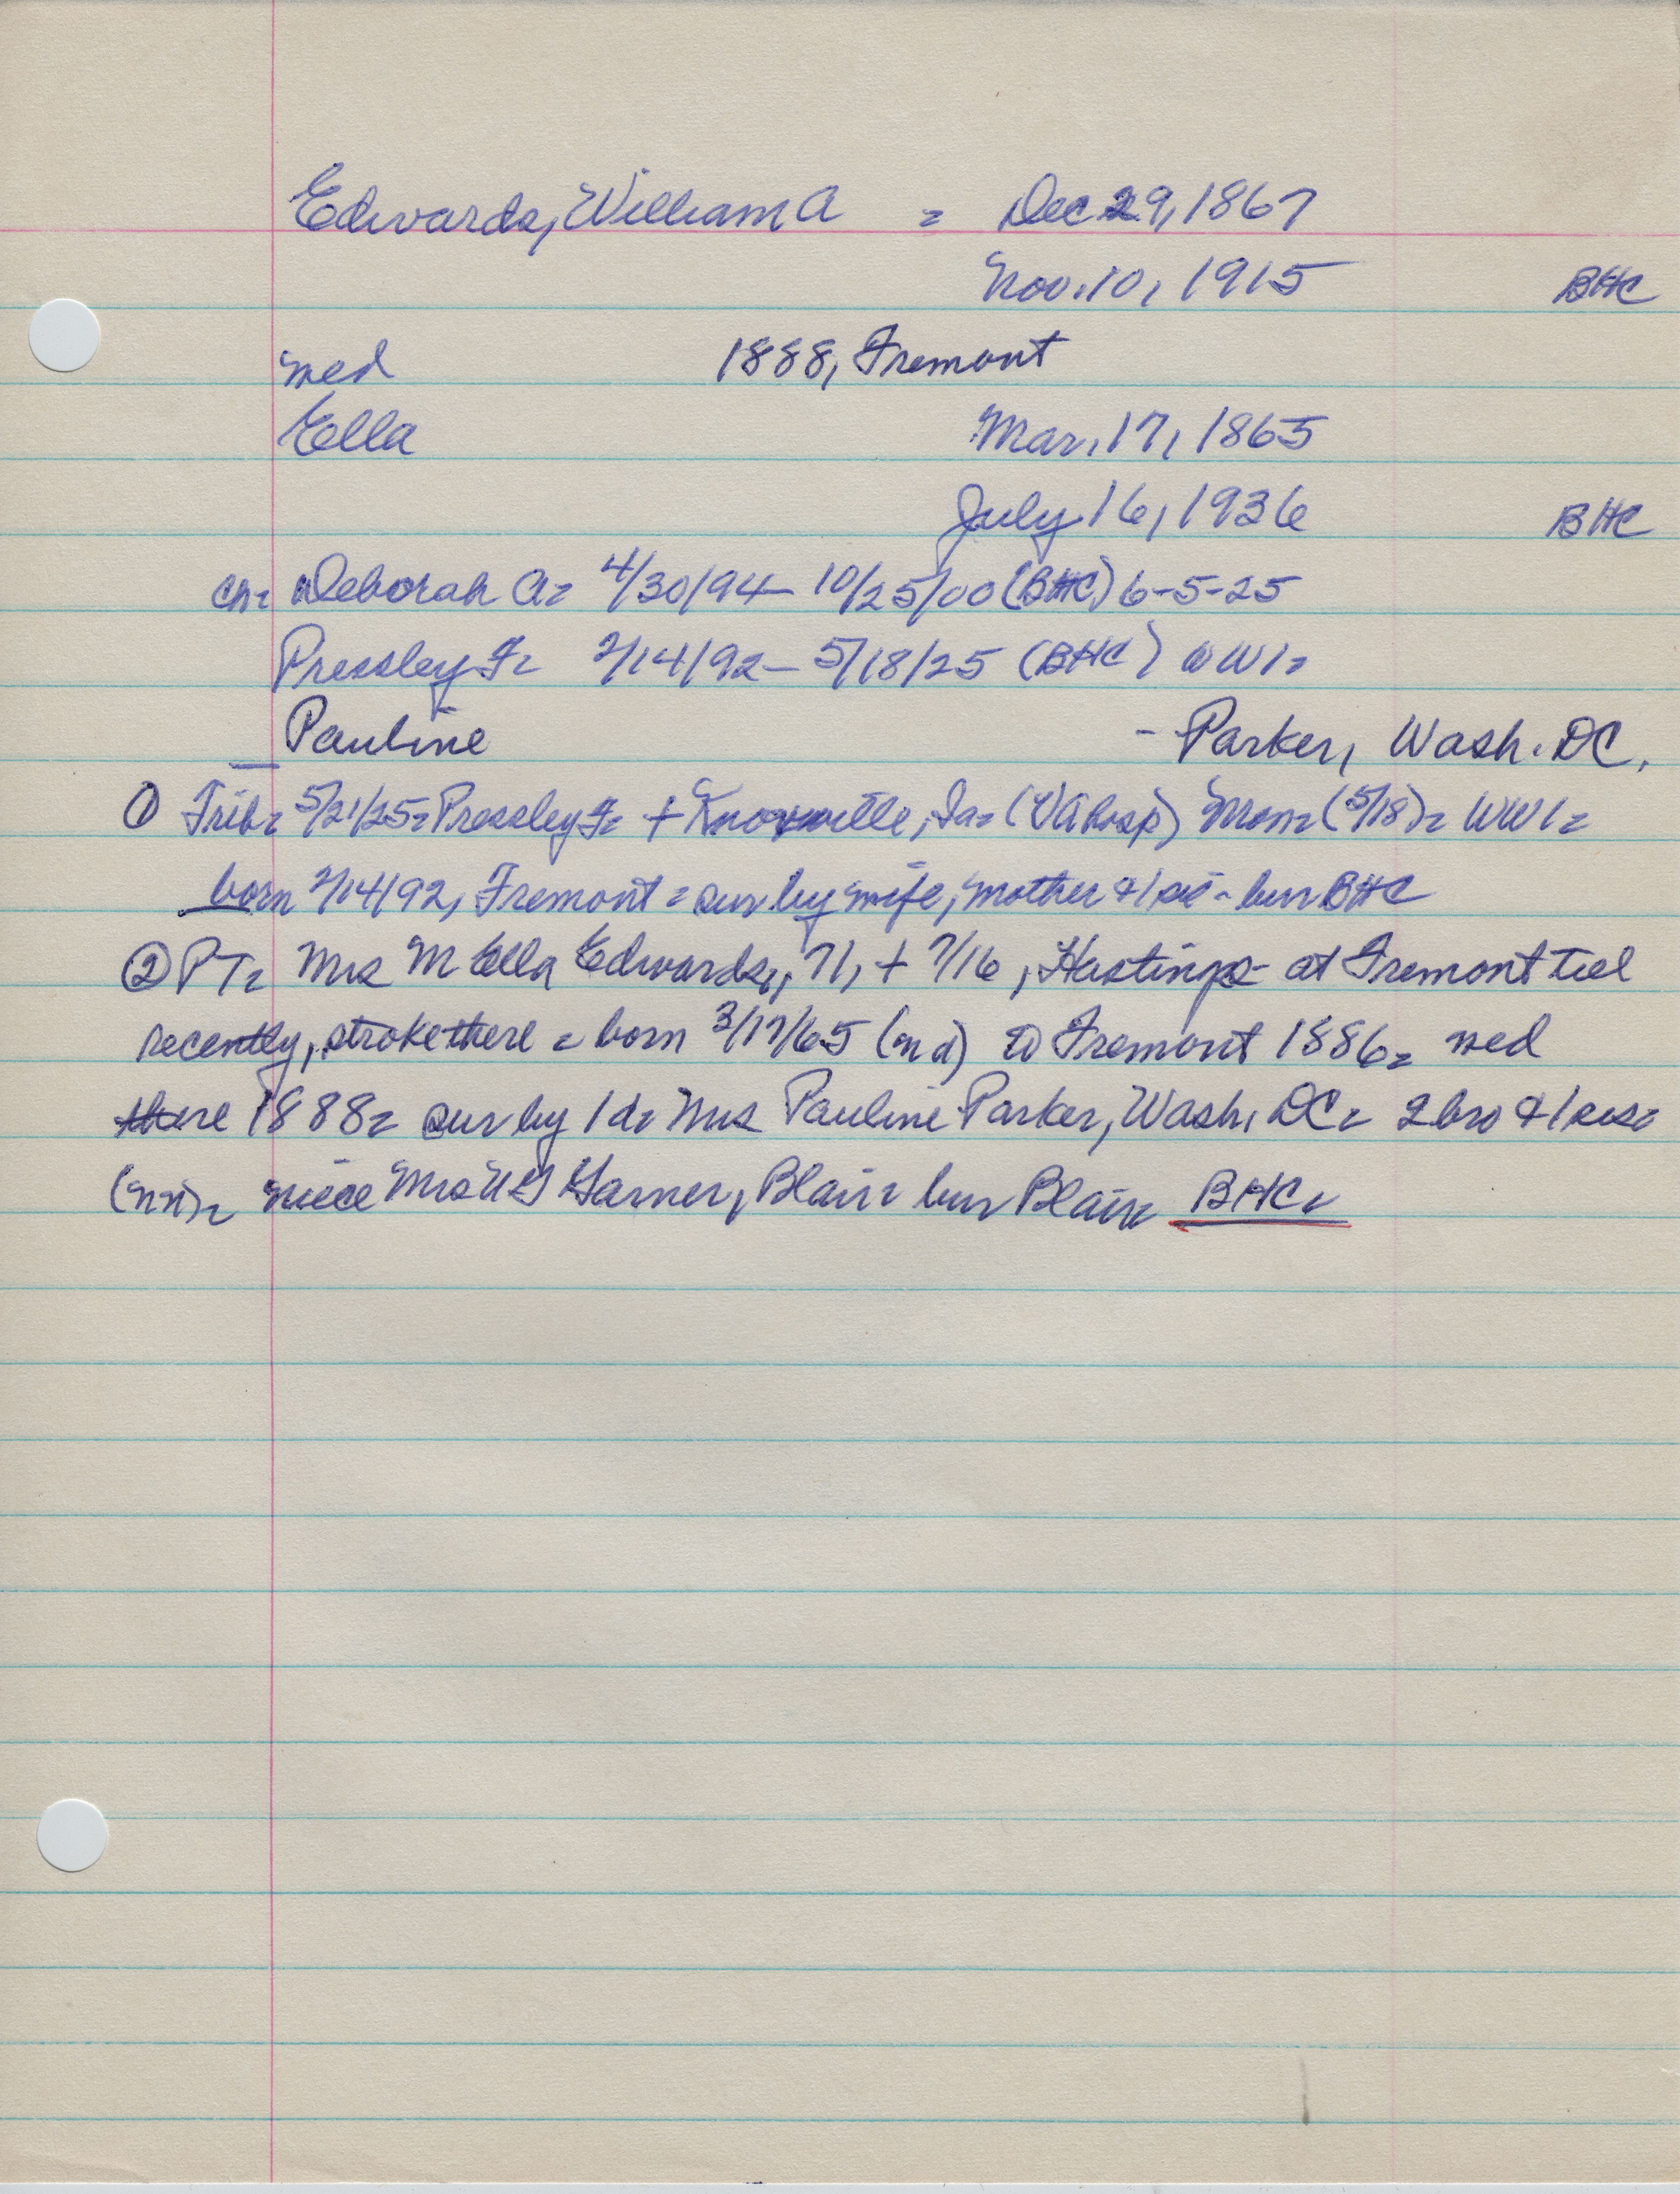 Edwards, William A = Dec 29, 1867
Nov. 10, 1915 BHC
med 1888, Fremont
Ella Mar. 17, 1865
July 16, 1936 BHC
ch= Deborah A= 4/30/94 - 10/25/00 (BHC) 6-5-25
Pressley F= 2/14/92 - 5/18/25 (BHC) WW1=
Pauline - Parker, Wash. DC.
① Trib= 5/21/25= Pressley F= + Knoxville, Ia= (VA hosp) Mon= (5/18)= WW1=
born 2/14/92, Fremont = sur by wife, mother & 1 sis - bur BHC
② PT= Mrs M Ella Edwards, 71, + 7/16, Hastings - at Fremont til
recently, stroke there = born 3/17/65 (nd) to Fremont 1886= med
there 1888= sur by 1 d= Mrs Pauline Parker, Wash, DC= 2 bro & 1 sis=
(nn)= niece Mrs Garner, Blair= bur Blair= BHC=